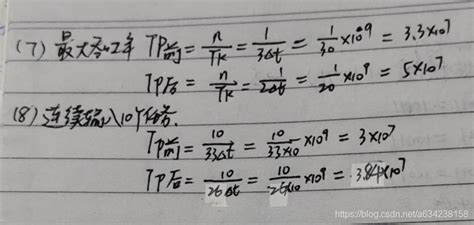 (7) 最大吞吐率 TP前 = n/Tk = 1/3Δt = 1/30 ×10⁹ = 3.3×10⁷
TP后 = n/Tk = 1/2Δt = 1/20 ×10⁹ = 5×10⁷
(8) 连续输入10个任务.
TP前 = 10/33Δt = 10/33×10 ×10⁹ = 3×10⁷
TP后 = 10/26Δt = 10/26×10 ×10⁹ = 3.84×10⁷
https://blog.csdn.net/a634238158